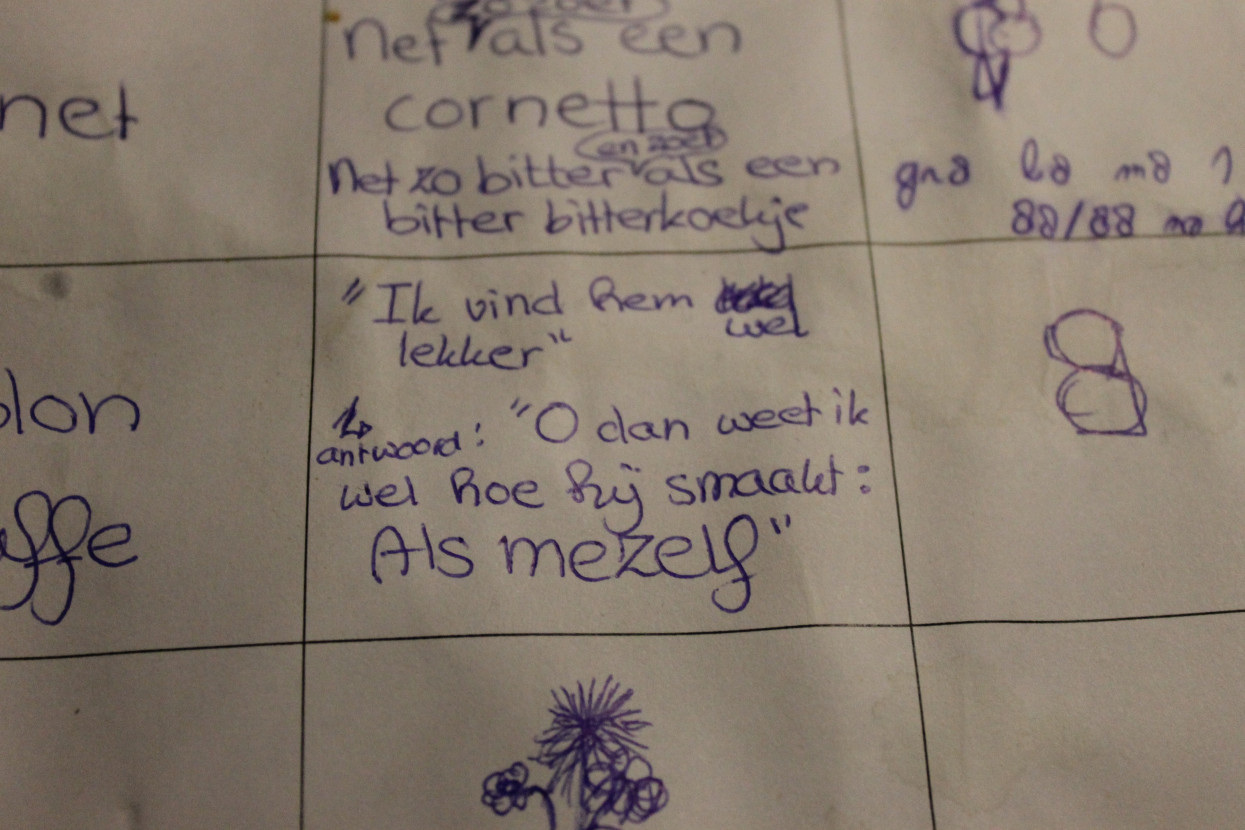 zo zoet
net als een
cornetto
en zoet
net
Net zo bitter als een
bitter bitterkoekje
"Ik vind hem
wel
lekker"
antwoord: "O dan weet ik
wel hoe hij smaakt:
Als mezelf"
lon
ffe